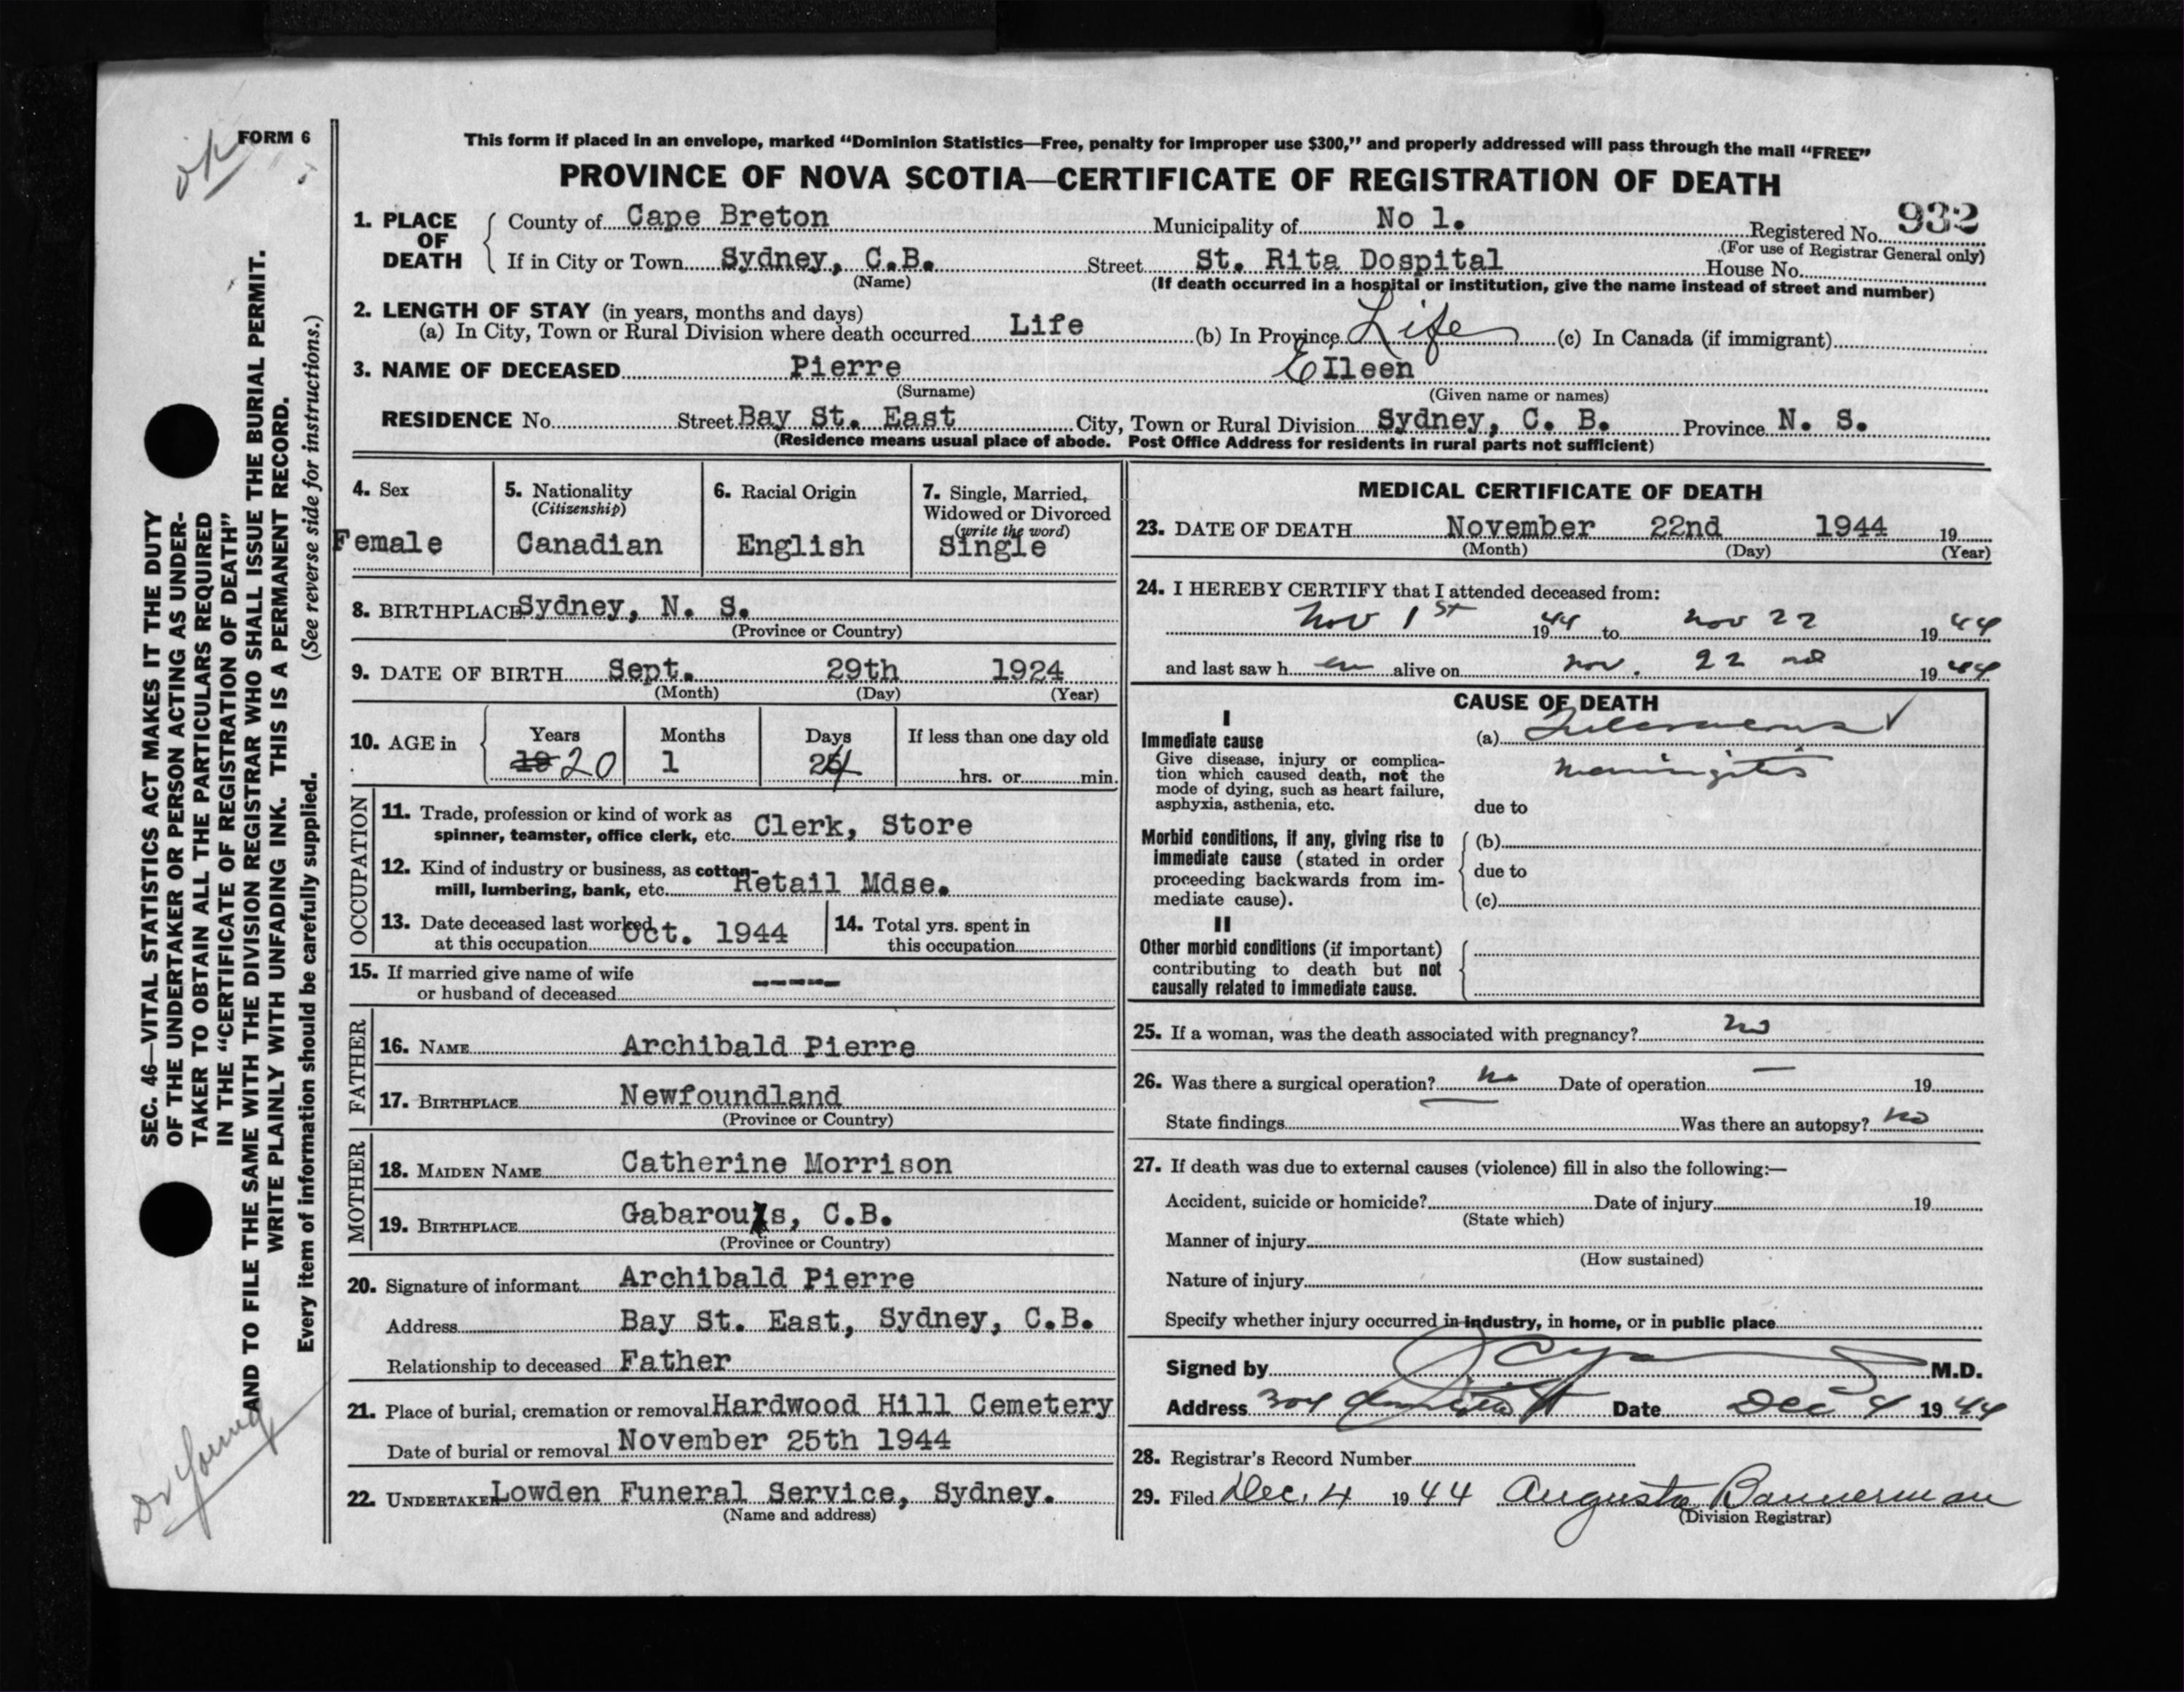 FORM 6
ok
This form if placed in an envelope, marked “Dominion Statistics—Free, penalty for improper use $300,” and properly addressed will pass through the mail “FREE”
PROVINCE OF NOVA SCOTIA—CERTIFICATE OF REGISTRATION OF DEATH
1. PLACE OF DEATH
County of Cape Breton Municipality of No 1. Registered No. 932
(For use of Registrar General only)
If in City or Town Sydney, C.B. Street St. Rita Dospital House No.
(Name) (If death occurred in a hospital or institution, give the name instead of street and number)
2. LENGTH OF STAY (in years, months and days)
(a) In City, Town or Rural Division where death occurred Life (b) In Province Life (c) In Canada (if immigrant)
3. NAME OF DECEASED Pierre EIleen
(Surname) (Given name or names)
RESIDENCE No. Street Bay St. East City, Town or Rural Division Sydney, C. B. Province N. S.
(Residence means usual place of abode. Post Office Address for residents in rural parts not sufficient)
4. Sex
Female
5. Nationality
(Citizenship)
Canadian
6. Racial Origin
English
7. Single, Married,
Widowed or Divorced
(write the word)
Single
8. BIRTHPLACE Sydney, N. S.
(Province or Country)
9. DATE OF BIRTH Sept. 29th 1924
(Month) (Day) (Year)
10. AGE in
Years Months Days If less than one day old
19 20 1 24 hrs. or min.
OCCUPATION
11. Trade, profession or kind of work as
spinner, teamster, office clerk, etc. Clerk, Store
12. Kind of industry or business, as cotton-
mill, lumbering, bank, etc. Retail Mdse.
13. Date deceased last worked
at this occupation Oct. 1944
14. Total yrs. spent in
this occupation
15. If married give name of wife
or husband of deceased -----
FATHER
16. NAME Archibald Pierre
17. BIRTHPLACE Newfoundland
(Province or Country)
MOTHER
18. MAIDEN NAME Catherine Morrison
19. BIRTHPLACE Gabarouxs, C.B.
(Province or Country)
20. Signature of informant Archibald Pierre
Address Bay St. East, Sydney, C.B.
Relationship to deceased Father
21. Place of burial, cremation or removal Hardwood Hill Cemetery
Date of burial or removal November 25th 1944
22. UNDERTAKER Lowden Funeral Service, Sydney.
(Name and address)
MEDICAL CERTIFICATE OF DEATH
23. DATE OF DEATH November 22nd 1944 19
(Month) (Day) (Year)
24. I HEREBY CERTIFY that I attended deceased from:
Nov 1st 1944 to Nov 22 1944
and last saw h er alive on Nov. 22nd 1944
CAUSE OF DEATH
I
Immediate cause
Give disease, injury or complica-
tion which caused death, not the
mode of dying, such as heart failure,
asphyxia, asthenia, etc.
(a) Tuberculous
Meningitis
due to
Morbid conditions, if any, giving rise to
immediate cause (stated in order
proceeding backwards from im-
mediate cause).
(b)
due to
(c)
II
Other morbid conditions (if important)
contributing to death but not
causally related to immediate cause.
25. If a woman, was the death associated with pregnancy? no
26. Was there a surgical operation? no Date of operation — 19
State findings Was there an autopsy? no
27. If death was due to external causes (violence) fill in also the following:—
Accident, suicide or homicide? Date of injury 19
(State which)
Manner of injury
(How sustained)
Nature of injury
Specify whether injury occurred in industry, in home, or in public place
Signed by M.D.
Address 304 Date Dec 4 1944
28. Registrar's Record Number
29. Filed Dec. 4 1944 Augusta Bannerman
(Division Registrar)
SEC. 46—VITAL STATISTICS ACT MAKES IT THE DUTY
OF THE UNDERTAKER OR PERSON ACTING AS UNDER-
TAKER TO OBTAIN ALL THE PARTICULARS REQUIRED
IN THE “CERTIFICATE OF REGISTRATION OF DEATH”
AND TO FILE THE SAME WITH THE DIVISION REGISTRAR WHO SHALL ISSUE THE BURIAL PERMIT.
WRITE PLAINLY WITH UNFADING INK. THIS IS A PERMANENT RECORD.
Every item of information should be carefully supplied. (See reverse side for instructions.)
Dr Young